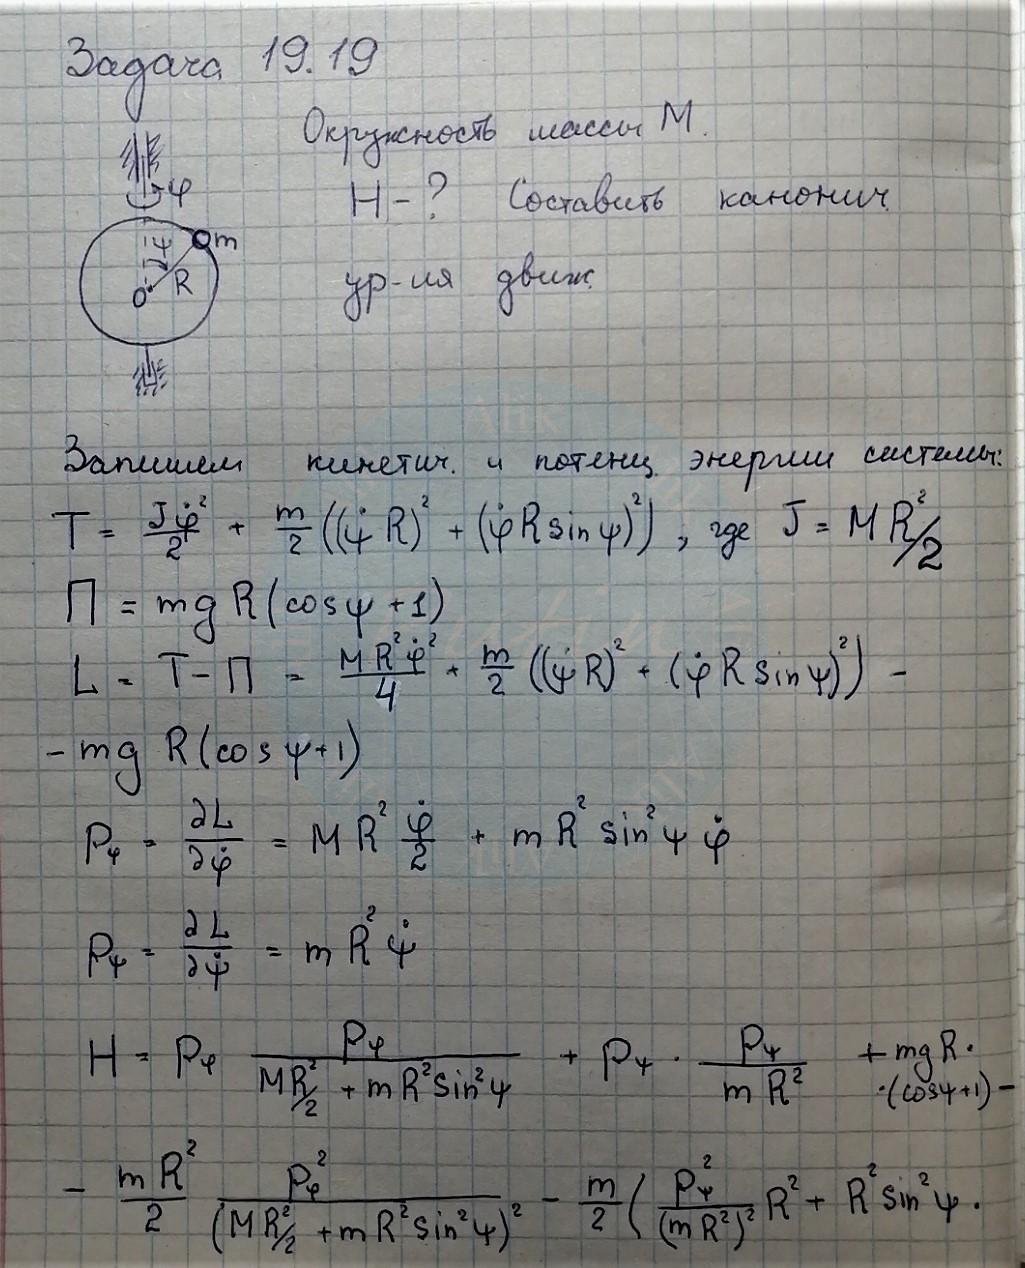 Задача 19.19
Окружность массы M.
H - ? Составить канонич.
ур-ия движ.
φ
ψ m
R
O
Запишем кинетич. и потенц. энергии системы:
T = Jφ̇²/2 + m/2 ((ψ̇ R)² + (φ̇ R sin ψ)²), где J = MR²/2
П = mg R (cos ψ + 1)
L = T - П = MR²φ̇²/4 + m/2 ((ψ̇R)² + (φ̇ R sin ψ)²) -
- mg R (cos ψ + 1)
Pφ = ∂L/∂φ̇ = MR² φ̇/2 + mR² sin²ψ φ̇
Pψ = ∂L/∂ψ̇ = mR² ψ̇
H = Pφ Pφ/(MR²/2 + mR² sin²ψ) + Pψ · Pψ/(mR²) + mgR ·
· (cosψ + 1) -
- mR²/2 Pφ²/(MR²/2 + mR² sin²ψ)² - m/2 (Pψ²/(mR²)² R² + R² sin²ψ ·